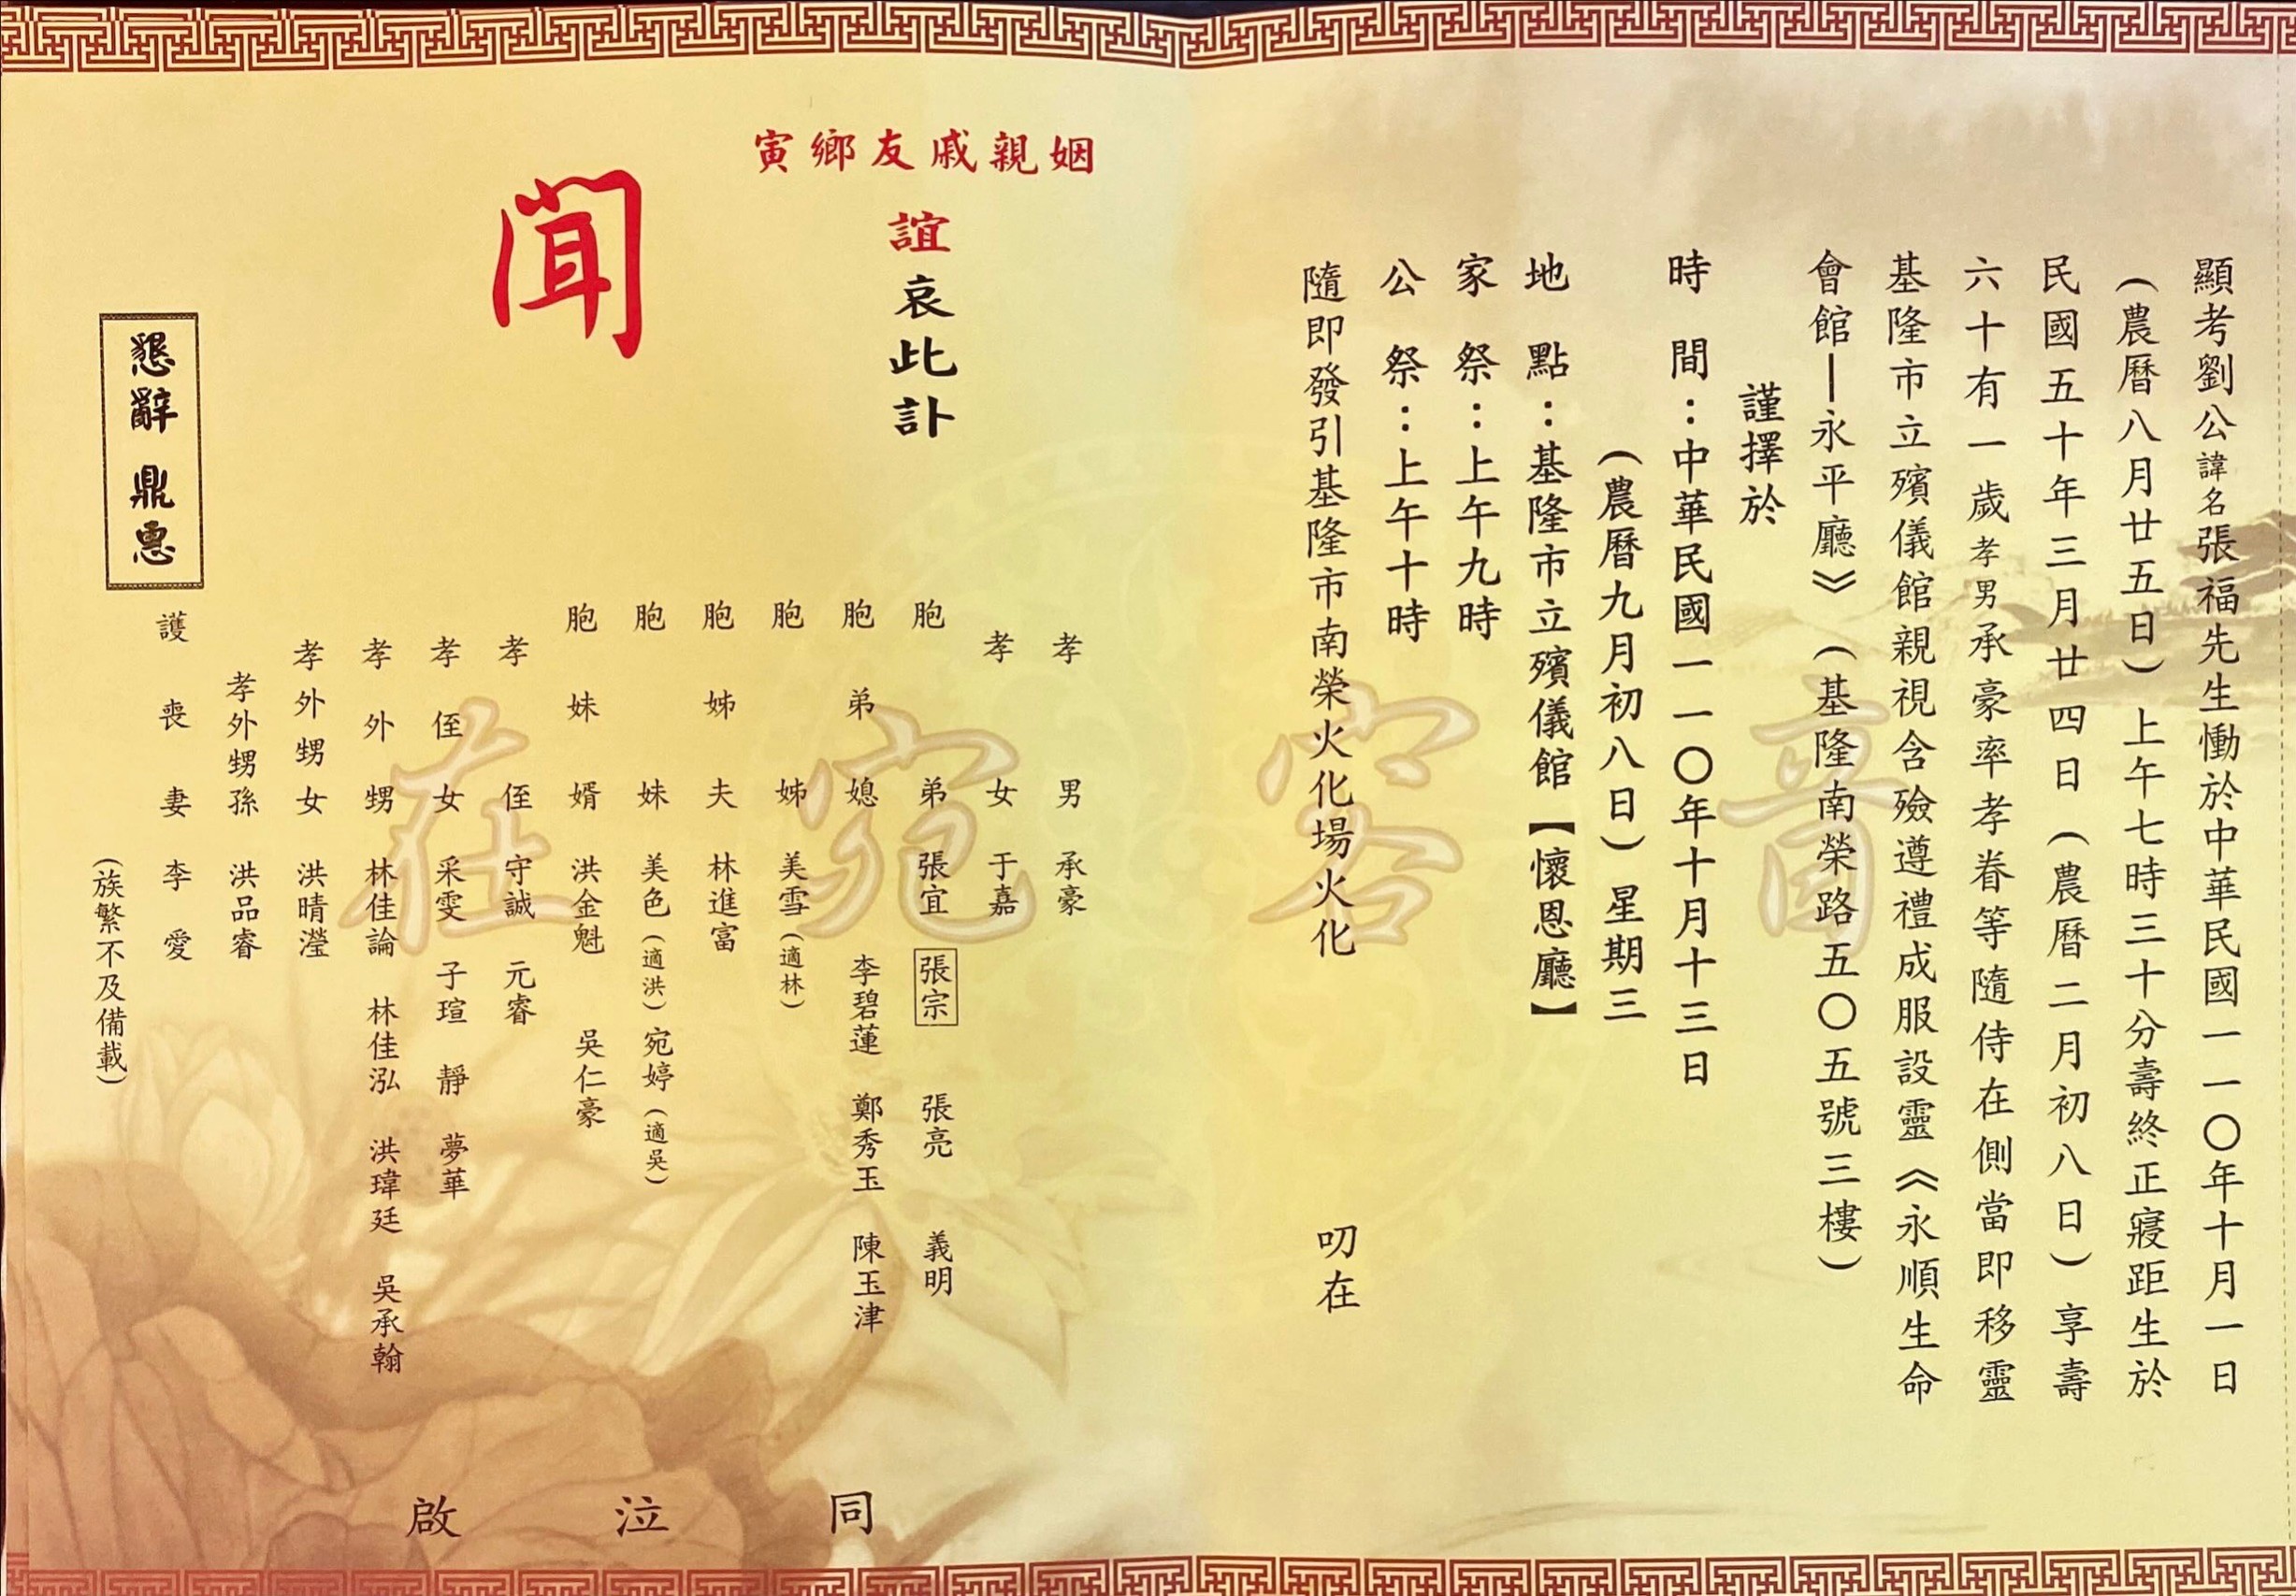 顯考劉公諱名張福先生慟於中華民國一一〇年十月一日
（農曆八月廿五日）上午七時三十分壽終正寢距生於
民國五十年三月廿四日（農曆二月初八日）享壽
六十有一歲孝男承豪率孝眷等隨侍在側當即移靈
基隆市立殯儀館親視含殮遵禮成服設靈《永順生命
會館—永平廳》（基隆南榮路五〇五號三樓）
謹擇於
時間：中華民國一一〇年十月十三日
（農曆九月初八日）星期三
地點：基隆市立殯儀館【懷恩廳】
家祭：上午九時
公祭：上午十時
隨即發引基隆市南榮火化場火化 叨在
姻親戚友鄉寅
誼哀此訃
聞
孝男 承豪
孝女 于嘉
胞弟 張宜 張宗 張亮 義明
胞弟媳 李碧蓮 鄭秀玉 陳玉津
胞姊 美雪（適林）
胞姊夫 林進富
胞妹 美色（適洪）宛婷（適吳）
胞妹婿 洪金魁 吳仁豪
孝侄 守誠 元睿
孝侄女 采雯 子瑄 靜 夢華
孝外甥 林佳論 林佳泓 洪瑋廷 吳承翰
孝外甥女 洪晴瀅
孝外甥孫 洪品睿
護喪妻 李愛
（族繁不及備載）
同泣啟
懇辭 鼎惠
音容宛在